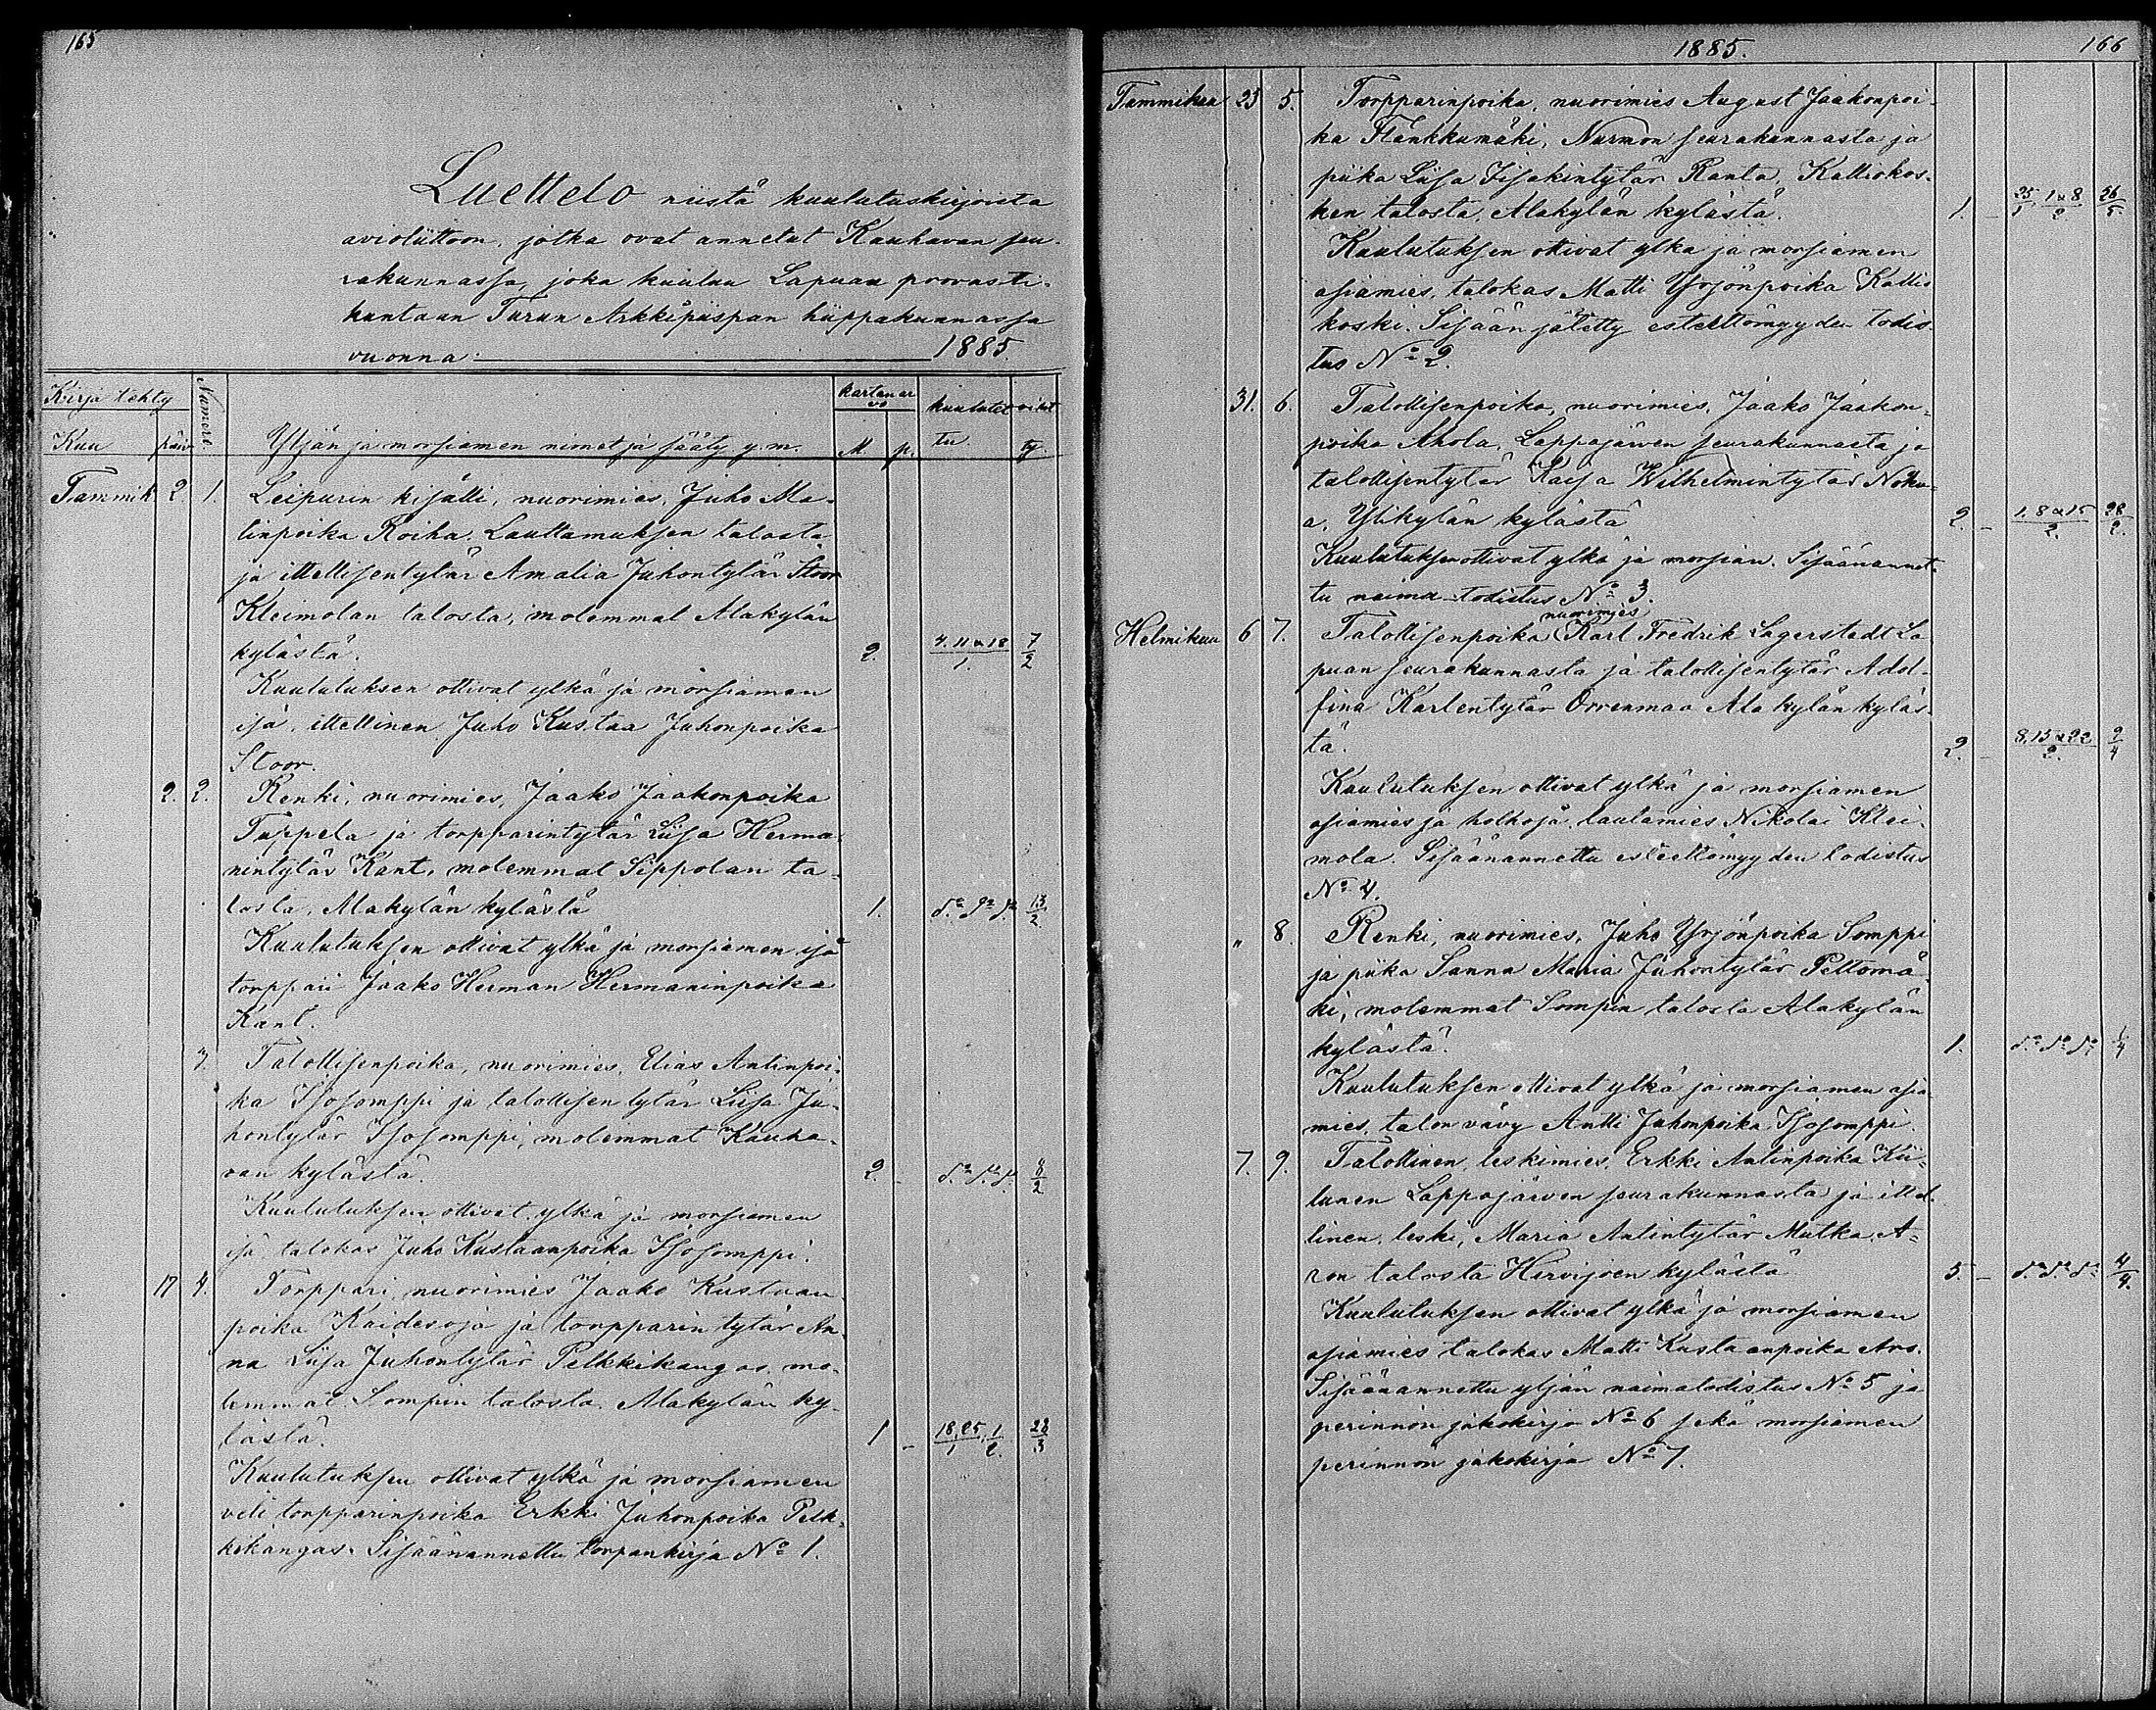 165
Luettelo niistä kuulutuskirjoista
avioliittoon, jotka ovat annetut Kauhavan seu-
rakunnassa, joka kuuluu Lapuan provasti-
kuntaan Turun Arkkipiispan hiippakunnassa
vuonna 1885.
Kirja tehty Numero kartan ar vo kuulutet vihit
Kuu päiv Yljän ja morsiamen nimet ja sääty y. m. M. p. tu ty.
Tammik 2 1. Leipurin kisälli, nuorimies, Juho Ma-
tinpoika Roiha, Lauttamuksen talosta
ja ittellisentytär Amalia Juhontytär Stoor
Kleimolan talosta, molemmat Alakylän
kylästä. 2. 4. 11 & 18/1 7/2
Kuulutuksen ottivat ylkä ja morsiamen
isä, ittellinen Juho Kustaa Juhonpoika
Stoor.
2. 2. Renki, nuorimies, Jaako Jaakonpoika
Tuppela ja torpparintytär Liisa Herma-
nintytär Kant, molemmat Sippolan ta-
losta, Alakylän kylästä 1. d:o d:o d:o 13/2
Kuulutuksen ottivat ylkä ja morsiamen isä
torppari Jaako Herman Hermaninpoika
Kant.
3. Talollisenpoika, nuorimies, Elias Antinpoi-
ka Isosomppi ja talollisentytär Liisa Ju-
hontytär Isosomppi, molemmat Kauha-
van kylästä. 2. - d:o d:o d:o 8/2
Kuulutuksen ottivat ylkä ja morsiamen
isä talokas Juho Kustaanpoika Isosomppi.
17 4. Torppari, nuorimies Jaako Kustaan-
poika Kaidesoja ja torpparintytär An-
na Liisa Juhontytär Pelkkikangas, mo-
lemmat Sompin talosta, Alakylän ky-
lästä. 1 - 18,25/1, 1/2. 28/3
Kuulutuksen ottivat ylkä ja morsiamen
veli torpparinpoika Erkki Juhonpoika Pelk-
kikangas. Sisäänannettu torpankirja No 1.
1885. 166
Tammikuu 23 5. Torpparinpoika, nuorimies August Jaakonpoi-
ka Hankkumäki, Nurmon seurakunnasta ja
piika Liisa Iisakintytär Ranta, Kalliokos-
ken talosta, Alakylän kylästä. 1. - 25/1, 1 & 8/2 26/5.
Kuulutuksen ottivat ylkä ja morsiamen
asiamies, talokas Matti Yrjönpoika Kallio
koski. Sisään jätetty esteettömyyden todis-
tus No 2.
31. 6. Talollisenpoika, nuorimies, Jaako Jaakon-
poika Ahola, Lappajärven seurakunnasta ja
talollisentytär Kaisa Wilhelmintytär Noku-
a, Ylikylän kylästä 2. - 1, 8 & 15/2. 28/2.
Kuulutuksen ottivat ylkä ja morsian. Sisäänannet-
tu naima-todistus No 3.
Helmikuu 6 7. Talollisenpoika nuorimies Karl Fredrik Lagerstedt La
puan seurakunnasta ja talollisentytär Adol-
fina Karlentytär Orrenmaa Alakylän kyläs-
tä. 2. - 8, 15 & 22/2. 2/4
Kuulutuksen ottivat ylkä ja morsiamen
asiamies ja holhoja, lautamies Nikolai Klei-
mola. Sisäänannettu esteettömyyden todistus
No 4.
" 8. Renki, nuorimies, Juho Yrjönpoika Somppi
ja piika Sanna Maria Juhontytär Peltomä-
ki, molemmat Sompin talosta Alakylän
kylästä. 1. d:o d:o d:o 1/4
Kuulutuksen ottivat ylkä ja morsiamen asia-
mies, talon vävy Antti Juhonpoika Isosomppi.
7. 9. Talollinen, leskimies, Erkki Antinpoika Kii-
lunen Lappajärven seurakunnasta ja ittel-
linen, leski, Maria Antintytär Mutka, A-
ron talosta Hirvijoen kylästä 5. - d:o d:o d:o 4/4.
Kuulutuksen ottivat ylkä ja morsiamen
asiamies talokas Matti Kustaanpoika Aro.
Sisäänannettu yljän naimatodistus No 5 ja
perinnön jakokirja No 6 sekä morsiamen
perinnön jakokirja No 7.